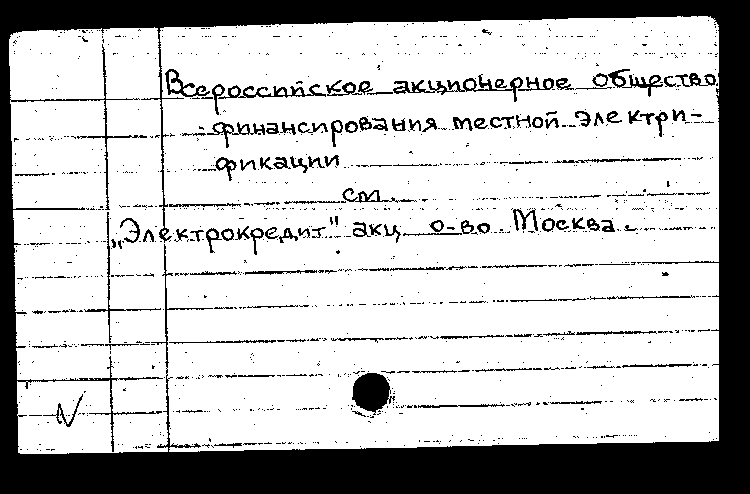 Всероссийское акционерное общество
финансирования местной электри-
фикации
см.
„Электрокредит" акц. о-во. Москва.